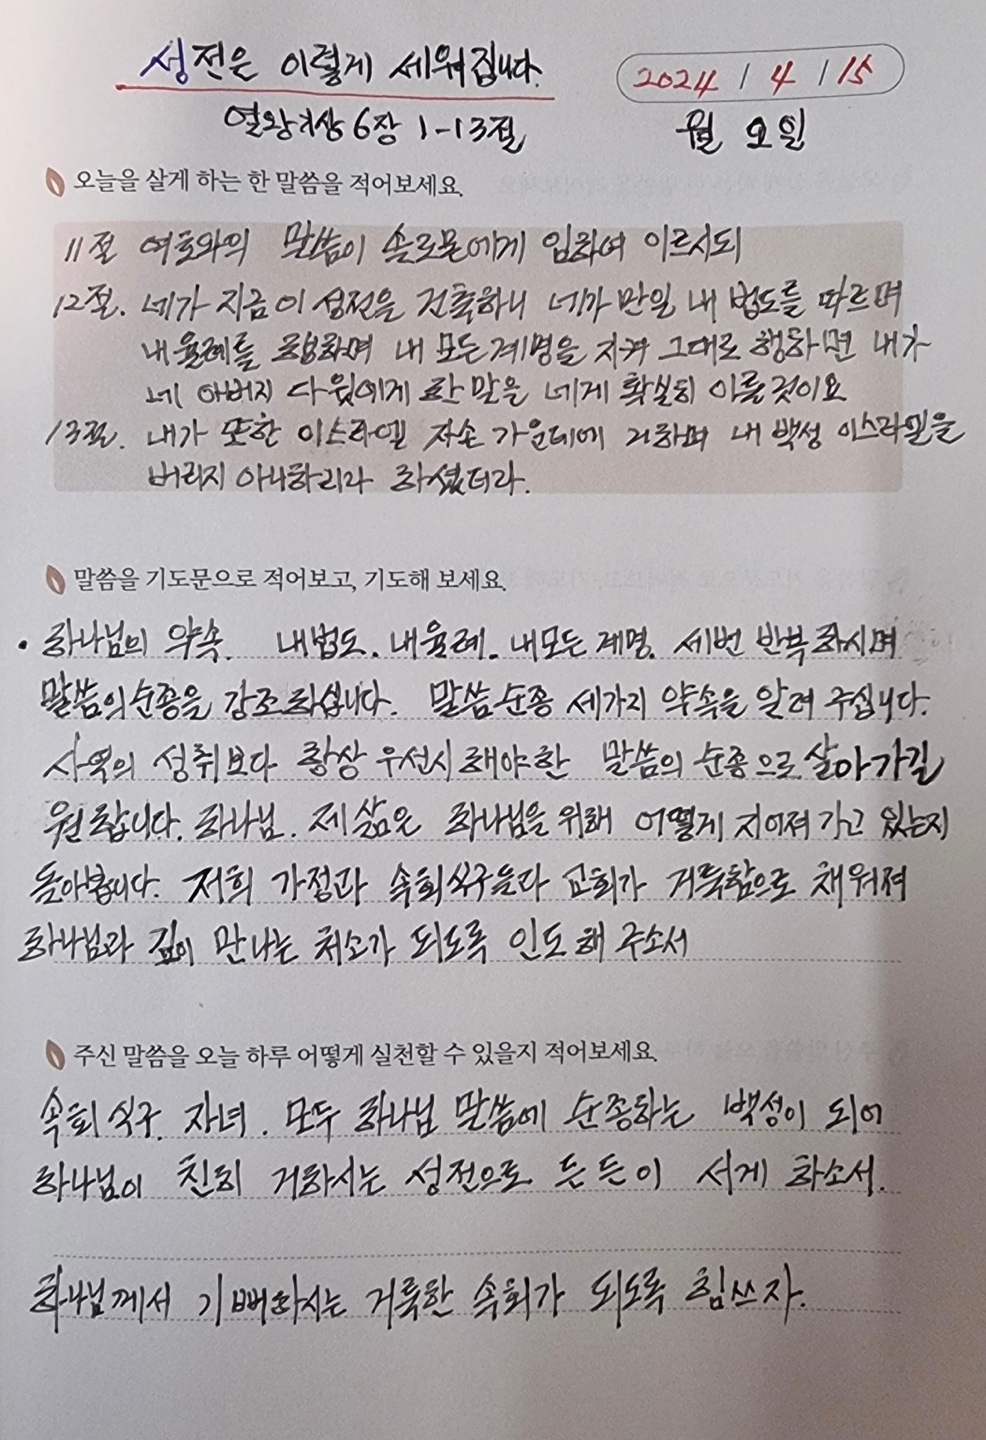 성전은 이렇게 세워집니다.
2024 / 4 / 15
열왕기상 6장 1-13절
월 요일
오늘을 살게 하는 한 말씀을 적어보세요.
11절 여호와의 말씀이 솔로몬에게 임하여 이르시되
12절. 네가 지금 이 성전을 건축하니 네가 만일 내 법도를 따르며
내 율례를 행하며 내 모든 계명을 지켜 그대로 행하면 내가
네 아버지 다윗에게 한 말을 네게 확실히 이룰것이요
13절. 내가 또한 이스라엘 자손 가운데에 거하며 내 백성 이스라엘을
버리지 아니하리라 하셨더라.
말씀을 기도문으로 적어보고, 기도해 보세요.
• 하나님의 약속. 내법도. 내율례. 내모든 계명. 세번 반복하시며
말씀의순종을 강조하십니다. 말씀순종 세가지 약속을 알려 주십니다.
사역의 성취보다 항상 우선시 해야한 말씀의 순종으로 살아가길
원합니다. 하나님. 제 삶은 하나님을 위해 어떻게 지어져 가고 있는지
돌아봅니다. 저희 가정과 속회식구들과 교회가 거룩함으로 채워져
하나님과 깊이 만나는 처소가 되도록 인도해 주소서
주신 말씀을 오늘 하루 어떻게 실천할 수 있을지 적어보세요.
속회식구. 자녀. 모두 하나님 말씀에 순종하는 백성이 되어
하나님이 친히 거하시는 성전으로 든든이 서게 하소서.
하나님께서 기뻐하시는 거룩한 속회가 되도록 힘쓰자.